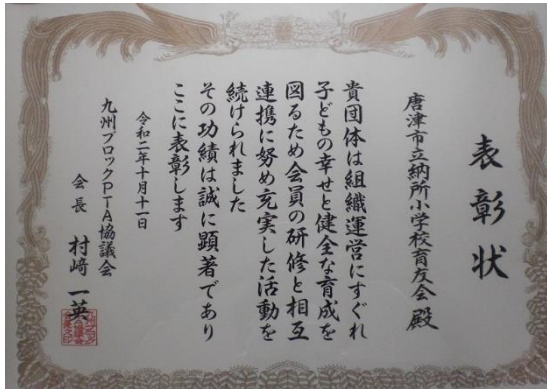 表彰状
唐津市立納所小学校育友会 殿
貴団体は組織運営にすぐれ
子どもの幸せと健全な育成を
図るため会員の研修と相互
連携に努め充実した活動を
続けられました
その功績は誠に顕著であり
ここに表彰します
令和二年十月十一日
九州ブロックPTA協議会
会長 村﨑 一英